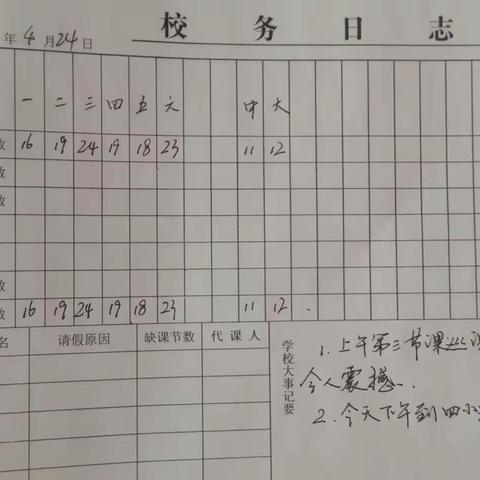 校 务 日 志
年 4 月 24 日
一 二 三 四 五 六 中 大
数 16 19 24 19 18 23 11 12
数
数
数
数 16 19 24 19 18 23 11 12 .
名 请假原因 缺课节数 代 课 人
学校大事记要
1. 上午第三节课巡课
令人震撼.
2. 今天下午到四小